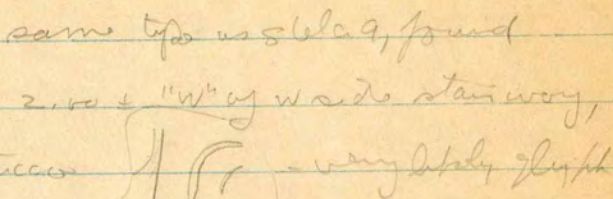 same type as stela 9, found
2.00 ± "W" of W side stairway,
stucco - very likely glyph